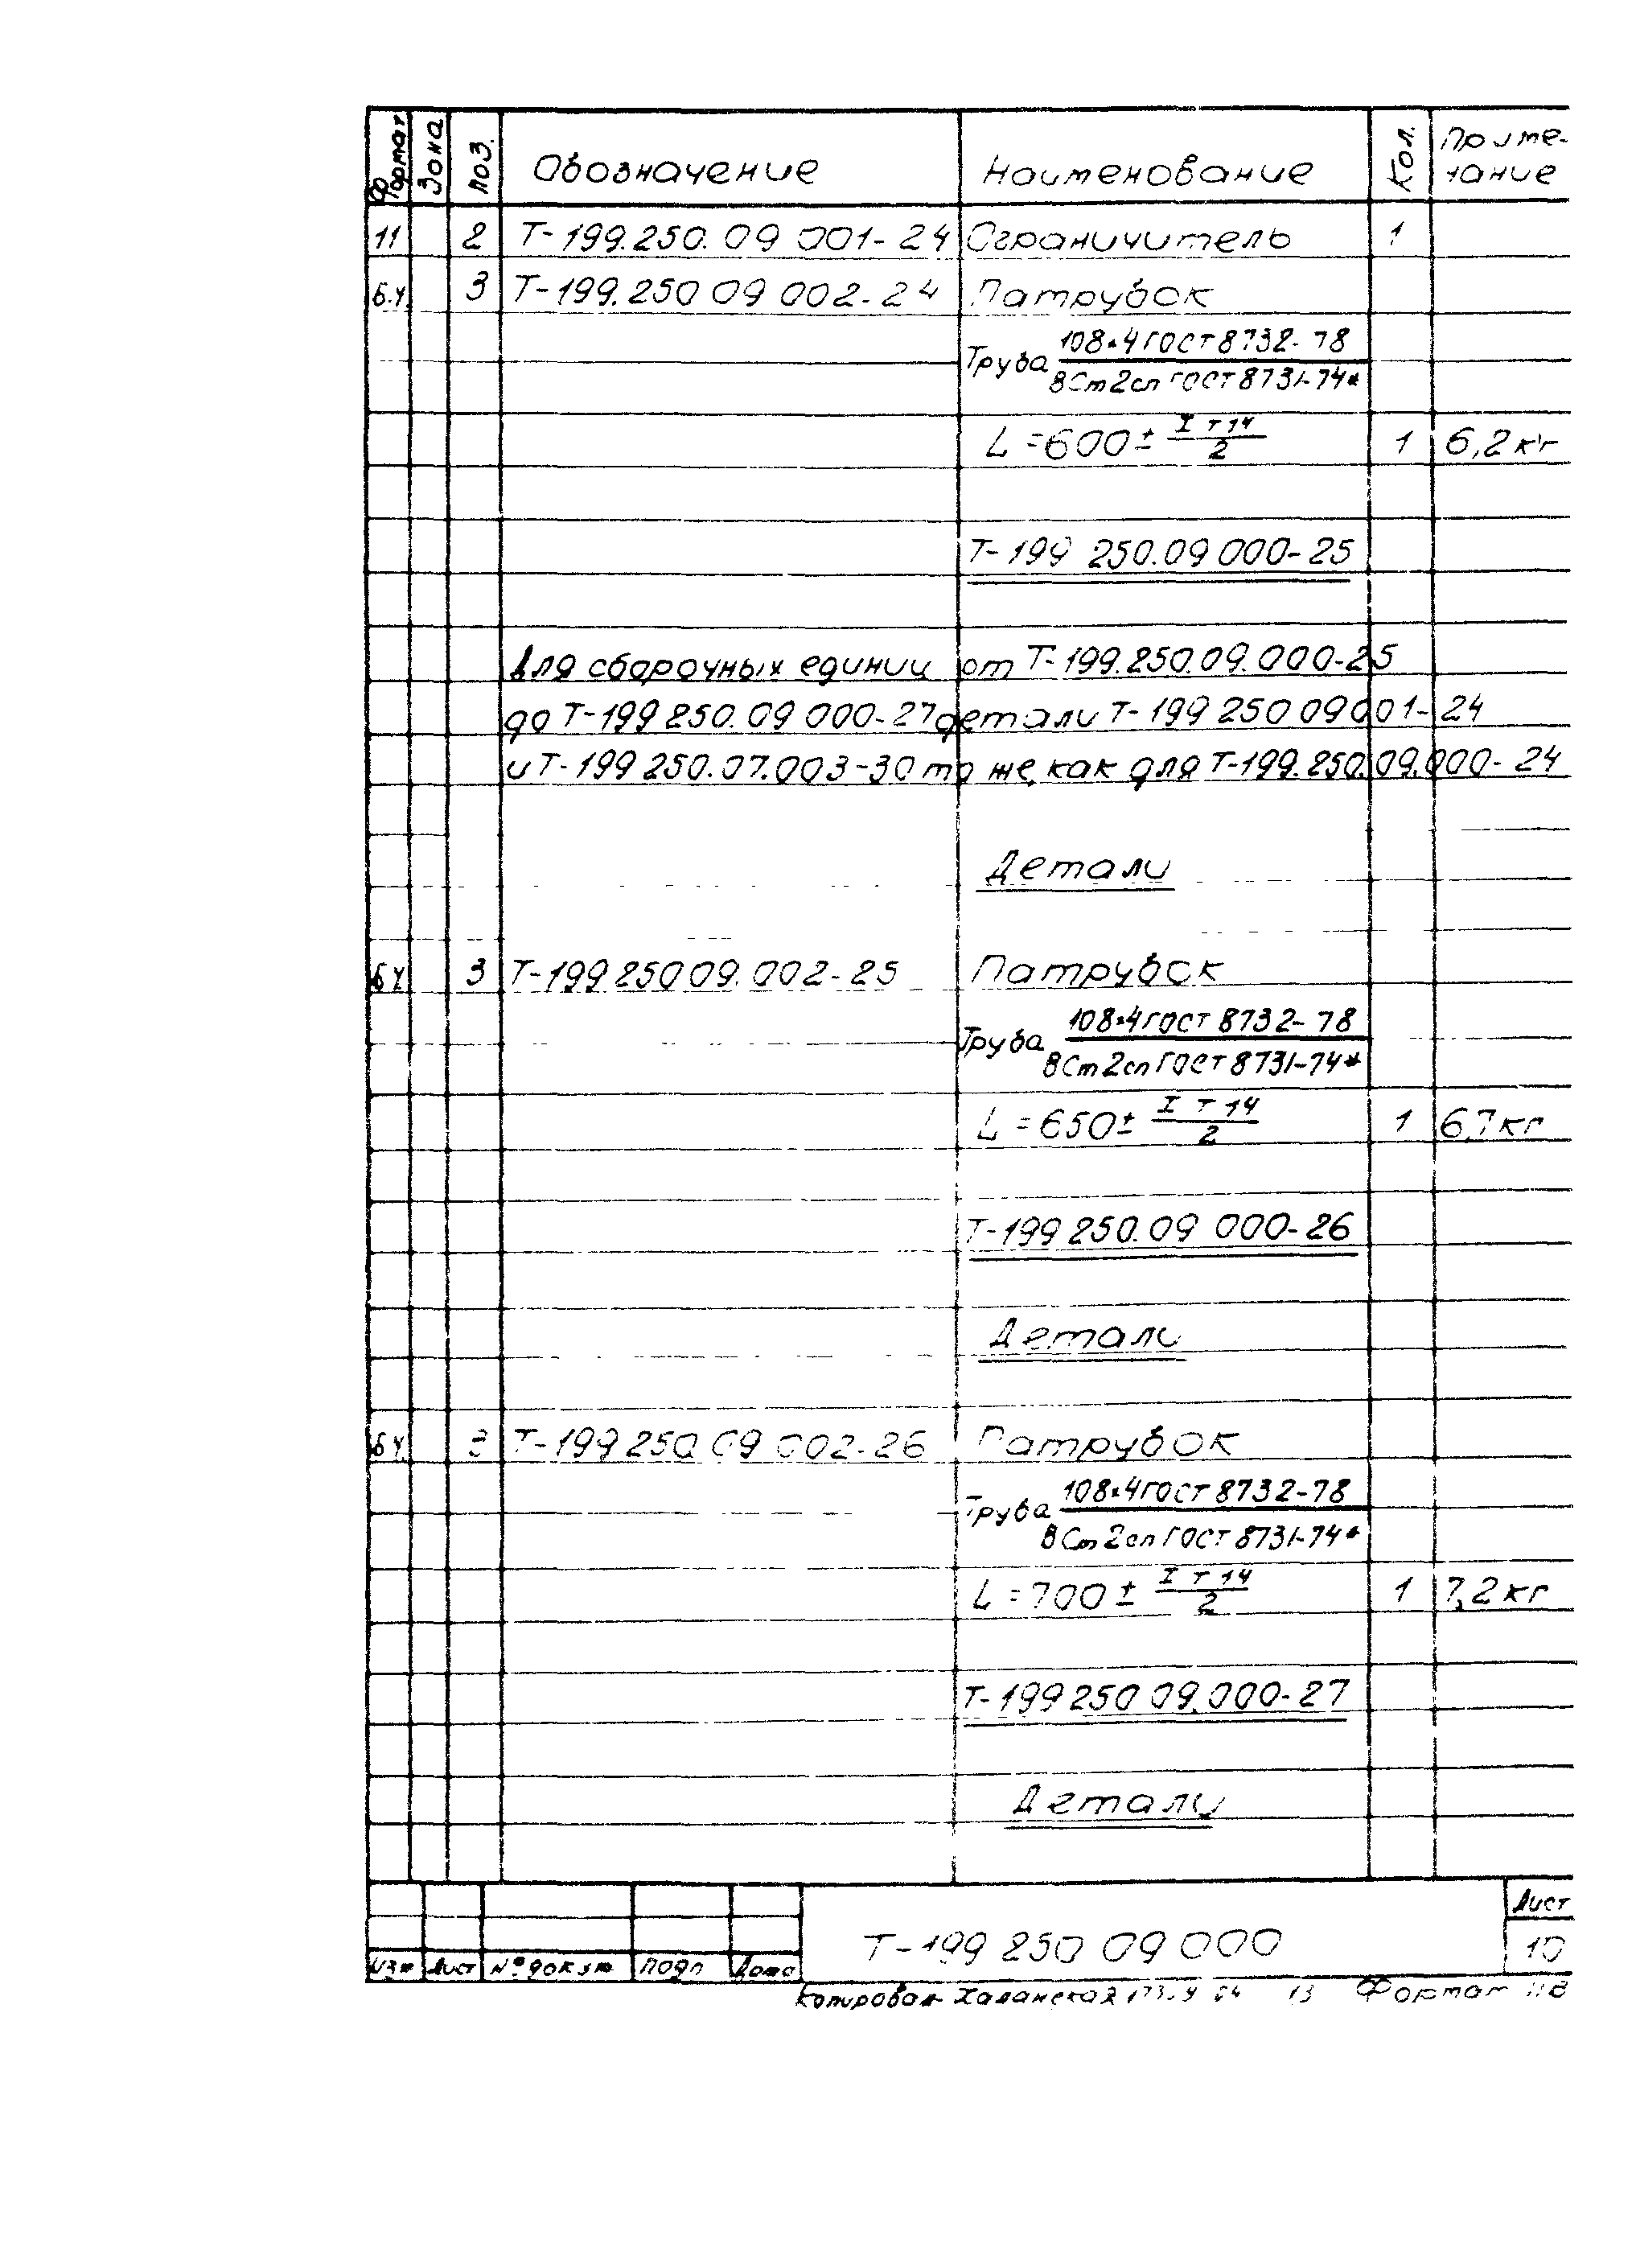 Формат Зона Поз. Обозначение Наименование Кол. Приме-
чание
11 2 Т-199.250.09 001-24 Ограничитель 1
Б.Ч. 3 Т-199.250 09 002-24 Патрубок
Труба 108×4 ГОСТ 8732-78
ВСт2сп ГОСТ 8731-74*
L=600± IT14/2 1 6,2 кг
Т-199 250.09 000-25
Для сборочных единиц от Т-199.250.09.000-25
до Т-199 250.09 000-27 детали Т-199 250 09 001-24
и Т-199 250.07.003-30 то же, как для Т-199.250.09.000-24
Детали
БЧ. 3 Т-199 250 09.002-25 Патрубок
Труба 108×4 ГОСТ 8732-78
ВСт2сп ГОСТ 8731-74*
L=650± IT14/2 1 6,7 кг
Т-199 250.09 000-26
Детали
БЧ. 3 Т-199 250 09 002-26 Патрубок
Труба 108×4 ГОСТ 8732-78
ВСт2сп ГОСТ 8731-74*
L=700± IT14/2 1 7,2 кг
Т-199 250 09.000-27
Детали
Изм Лист № докум Подп Дата Т-199 250 09 000 Лист
10
Копировал 13 Формат 11В